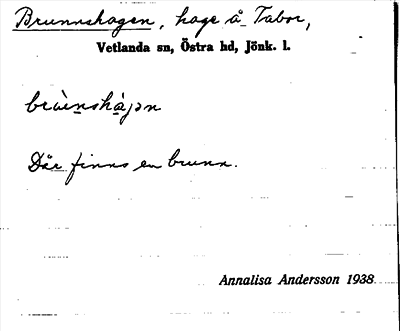 Brunnshagen, hage å Tabor,
Vetlanda sn, Östra hd, Jönk. l.
Där finns en brunn.
Annalisa Andersson 1938